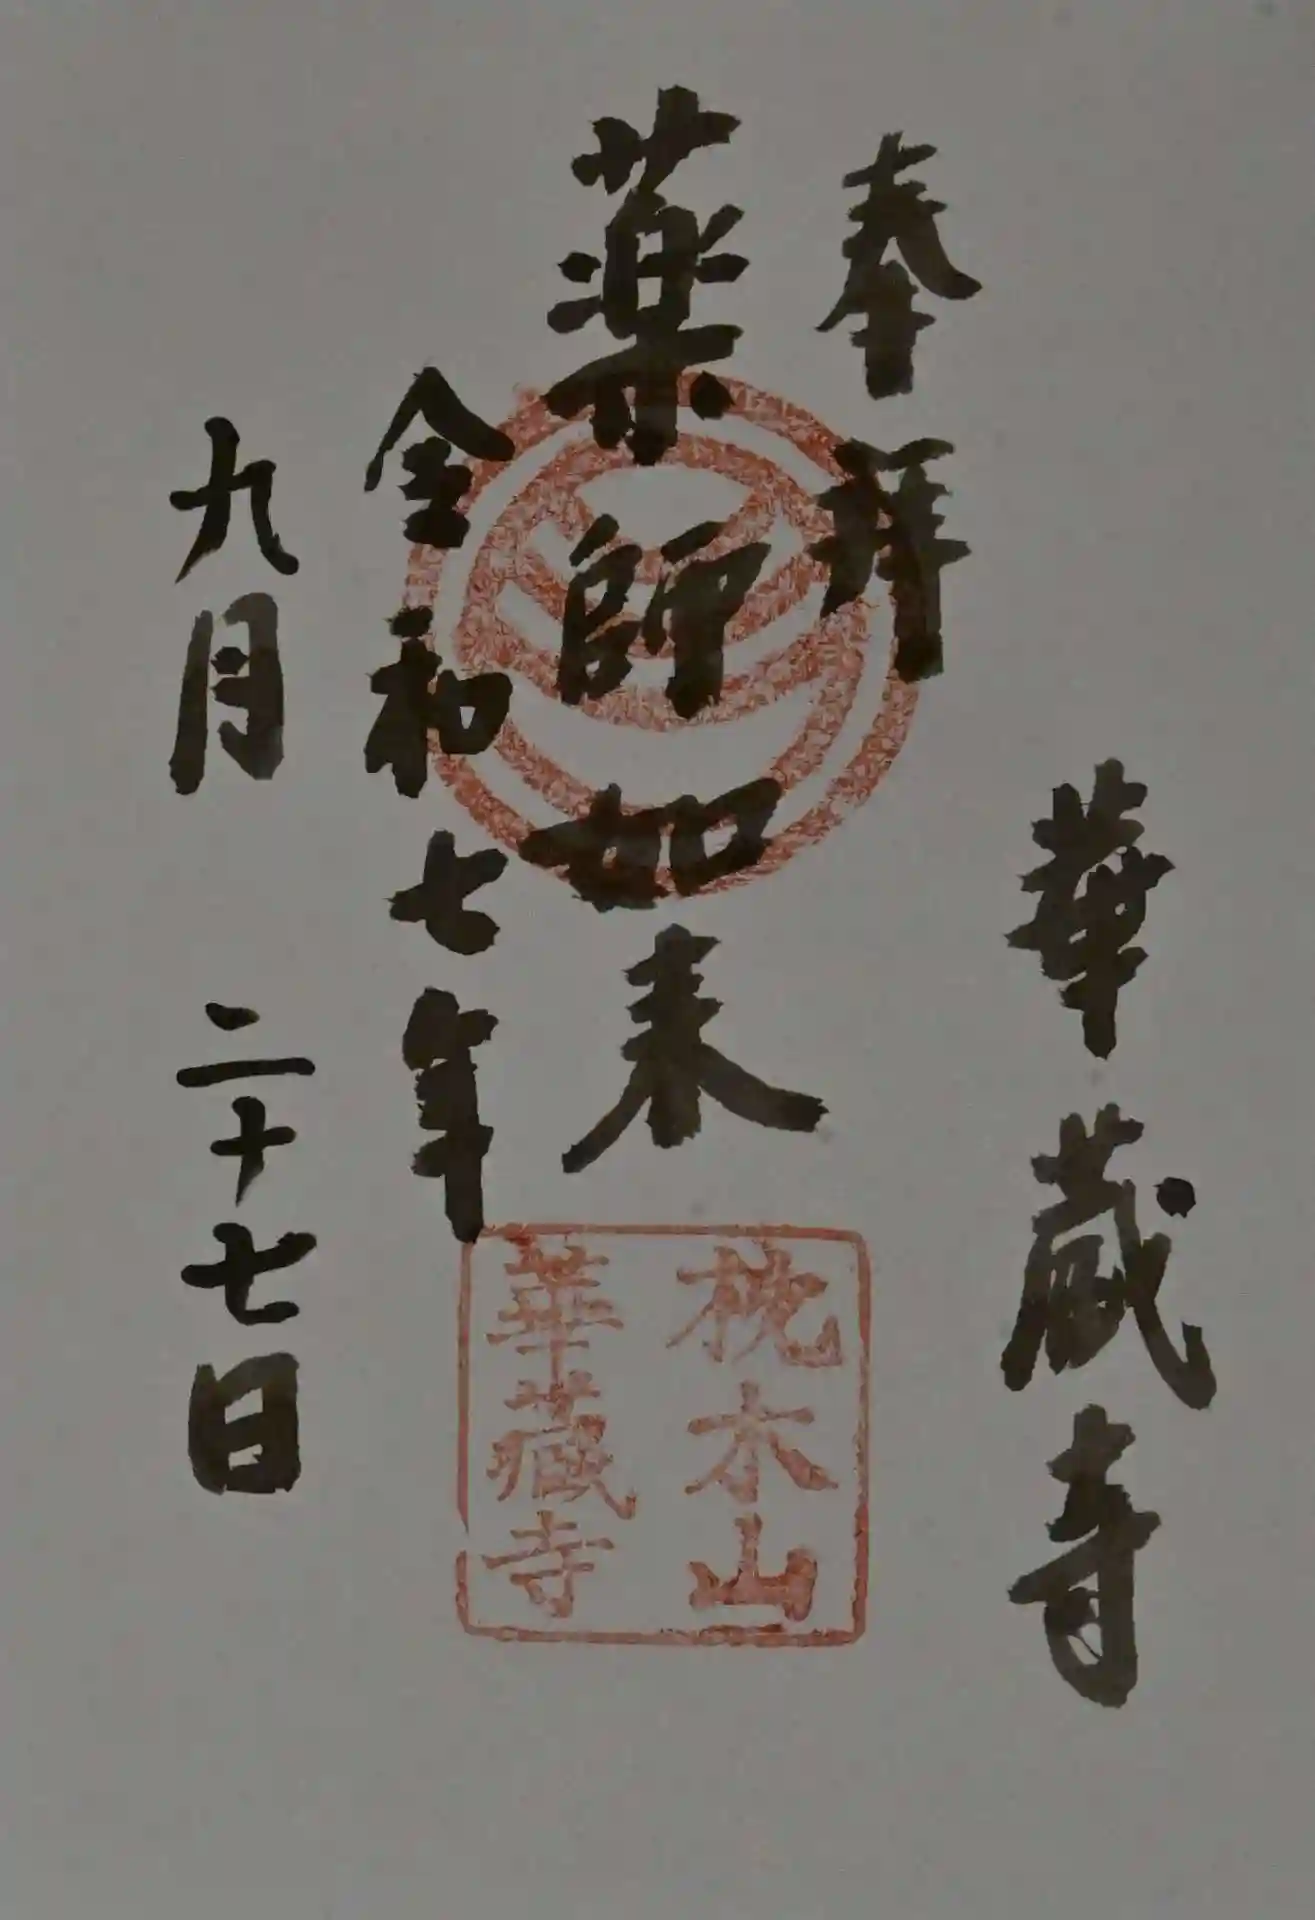 華蔵寺
奉拝
薬師如来
令和七年
九月二十七日
枕木山
華藏寺